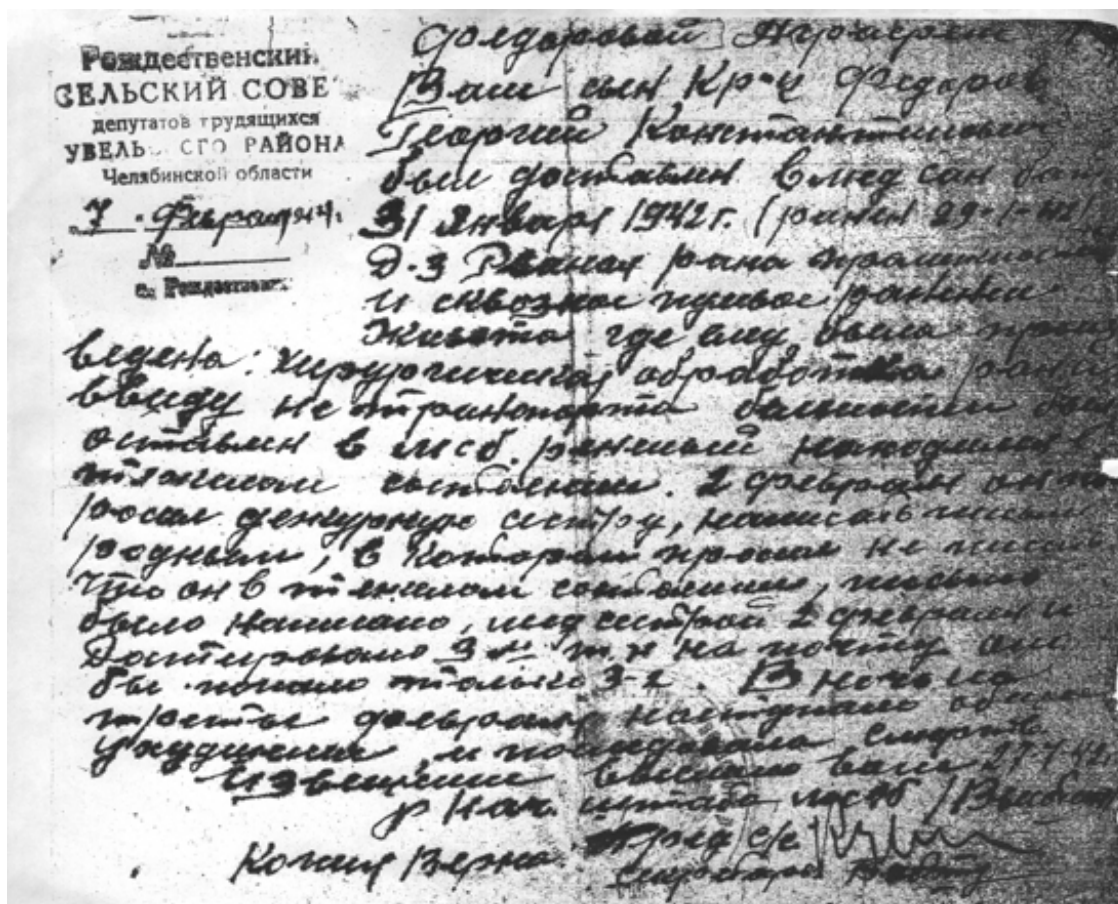 Рождественский
СЕЛЬСКИЙ СОВЕ
депутатов трудящихся
УВЕЛЬ СГО РАЙОНА
Челябинской области
7 Февраля
№
с. Рождествен
Ваш сын Кр-ц Федоров
Георгий Константинович
был доставлен в мед сан бат
31 Января 1942г. (ранен 29-1-42)
Д-з Рваная рана
и сквозное пулевое ранение
Живота где ему была про
ведена: хирургическая обработка раны
ввиду не транспорта бельности был
оставлен в мсб. раненый находился в
тяжелом состоянии. 2 февраля он по
росил дежурную сестру, написать письмо
родным, в котором просил не писать
что он в тяжелом состоянии, письмо
было написано, мед сестрой 2 февраля и
Датировано 3-м т к на почту оно
бы попало только 3-г. В ночь на
третье февраля наступило
ухудшение, и последовала смерть
Извещение выслано вам 27-7-42г
Нач. штаба мсб
Копия Верна. Пред с/с
Секретарь